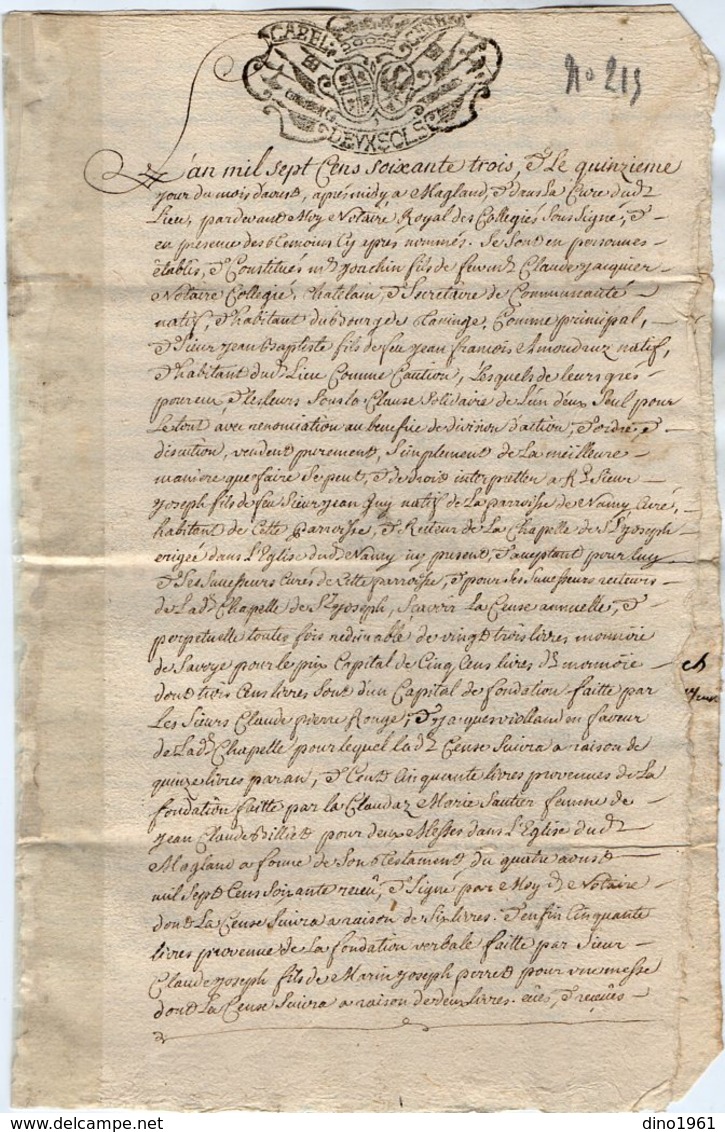 GABEL GENER
DEVX SOLS
No 215
L'an mil sept Cens soixante trois, & Le quinzieme
jour du mois d'aoust, aprés midy a Magland, & dans La Cure dud:t
Lieu, pardevant Moy Notaire Royal des Collegiés soussigné, &
en presence des temoins Cy aprés nommés. Se sont en personnes
établis, & Constitués m:e joachin fils de feu m:e Claude jacquier
Notaire Collegié, Chatelain, & Secretaire de Communauté
natif, & habitant du Bourg de taninge, Comme principal,
& Sieur jean Baptiste fils de feu jean francois Amoudruz natif,
& habitant dud:t Lieu Comme Caution, Lesquels de leurs grés
pour eux, & les leurs sous la Clause solidaire de L'un d'eux seul pour
Le tout avec renonciation au benefice de division d'action, & ordre, &
discution, vendent purement, simplement de La meilleure
maniere que faire se peut, & de droit interpretter a R:d Sieur
joseph fils de feu Sieur jean Guy natif de La parroisse de Nancy Curé,
habitant de Cette parroisse, & Recteur de La Chapelle de S:t joseph
erigée dans L'Eglise dud:t Nancy icy present, & acceptant pour luy
& ses successeurs Curés de Cette parroisse, & pour ses successeurs recteurs
de Lad:te Chapelle de S:t joseph, sçavoir La Cense annuelle, &
perpetuelle toutes fois redimable de vingt trois livres monnoie
de Savoye pour le prix Capital de Cinq Cens livres d:te monnoie
dont trois Cens livres sont d'un Capital de fondation faitte par
Les Sieurs Claude pierre Rouge, & jacques violland en faveur
de Lad:te Chapelle pour lequel lad:te Cense suivra a raison de
quinze livres par an, & Cent Cinquante livres provenues de La
fondation faitte par la Claudaz Marie Sautier femme de
jean Claude Billiet pour deux Messes dans L'Eglise dud:t
Magland a forme de son testament du quatre aoust
mil sept Cens soixante receu, & signé par Moy d:t Notaire
dont La Cense suivra a raison de six livres. & enfin Cinquante
livres provenue de La fondation verbale faitte par Sieur
Claude joseph fils de Marin joseph perret pour vne messe
dont La Cense suivra a raison de deux livres. eües, & reçeües
dino1961